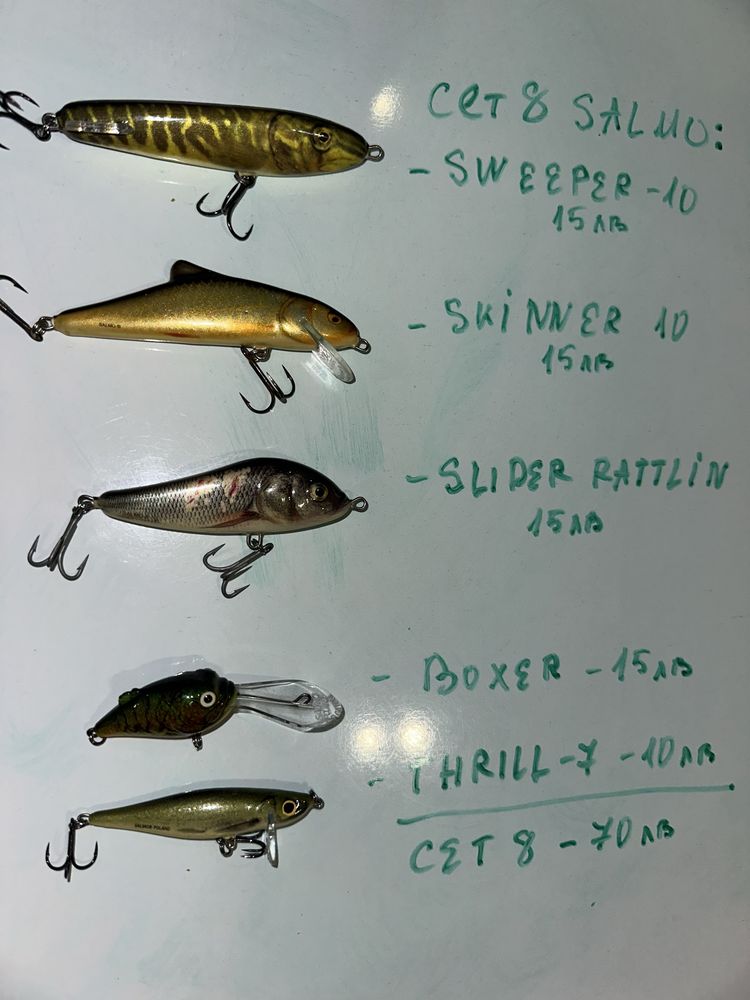 СЕТ 8 SALMO:
- SWEEPER - 10
15 лв
- SKINNER 10
15 лв
- SLIDER RATTLIN
15 лв
- BOXER - 15 лв
- THRILL - 7 - 10 лв
СЕТ 8 - 70 лв
SALMO®
SALMO® POLAND